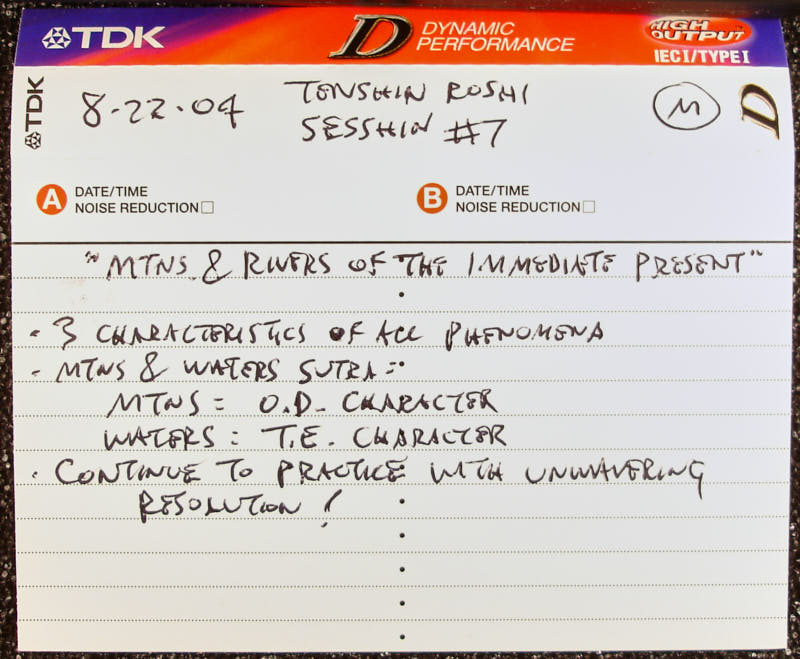 TDK
D DYNAMIC PERFORMANCE
HIGH OUTPUT
IEC I/TYPE I
TDK
8-22-04
TENSHIN ROSHI
SESSHIN #7
M
D
A DATE/TIME
NOISE REDUCTION
B DATE/TIME
NOISE REDUCTION
"MTNS & RIVERS OF THE IMMEDIATE PRESENT"
· 3 CHARACTERISTICS OF ALL PHENOMENA
· MTNS & WATERS SUTRA:
MTNS = O.D. CHARACTER
WATERS = T.E. CHARACTER
· CONTINUE TO PRACTICE WITH UNWAVERING
RESOLUTION!